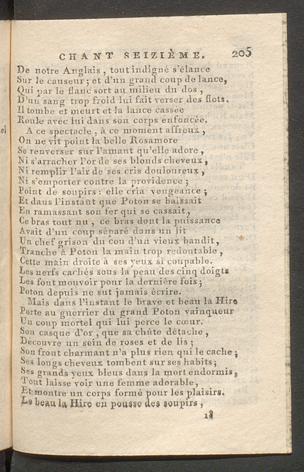 CHANT SEIZIÈME. 205
De notre Anglais, tout indigné s'élance
Sur le causeur; et d'un grand coup de lance,
Qui par le flanc sort au milieu du dos,
D'un sang trop froid lui fait verser des flots.
Il tombe et meurt et la lance cassée
Roule avec lui dans son corps enfoncée.
A ce spectacle, à ce moment affreux,
On ne vit point la belle Rosamore
Se renverser sur l'amant qu'elle adore,
Ni s'arracher l'or de ses blonds cheveux,
Ni remplir l'air de ses cris douloureux,
Ni s'emporter contre la providence;
Point de soupirs: elle cria vengeance;
Et dans l'instant que Poton se baissait
En ramassant son fer qui se cassait,
Ce bras tout nu, ce bras dont la puissance
Avait d'un coup séparé dans un lit
Un chef grison du cou d'un vieux bandit,
Tranche à Poton la main trop redoutable,
Cette main droite à ses yeux si coupable.
Les nerfs cachés sous la peau des cinq doigts
Les font mouvoir pour la dernière fois;
Poton depuis ne sut jamais écrire.
Mais dans l'instant le brave et beau la Hire
Porte au guerrier du grand Poton vainqueur
Un coup mortel qui lui perce le cœur.
Son casque d'or, que sa chûte détache,
Découvre un sein de roses et de lis;
Son front charmant n'a plus rien qui le cache;
Ses longs cheveux tombent sur ses habits;
Ses grands yeux bleus dans la mort endormis,
Tout laisse voir une femme adorable,
Et montre un corps formé pour les plaisirs.
Le beau la Hire en pousse des soupirs,
18